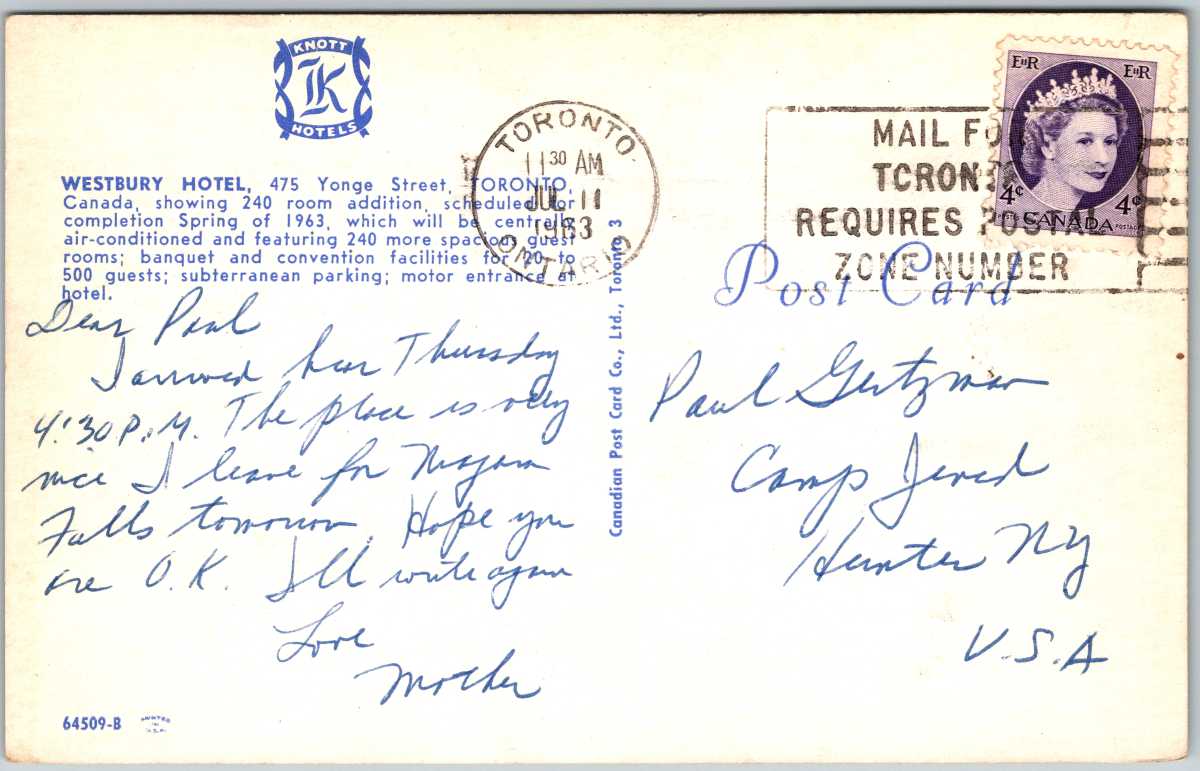 KNOTT
K
HOTELS
WESTBURY HOTEL, 475 Yonge Street, TORONTO,
Canada, showing 240 room addition, scheduled for
completion Spring of 1963, which will be centrally
air-conditioned and featuring 240 more spacious guest
rooms; banquet and convention facilities for 20 to
500 guests; subterranean parking; motor entrance at
hotel.
Dear Paul
I arrived here Thursday
4:30 P.M. The place is very
nice I leave for Niagara
Falls tomorrow. Hope you
are O.K. I'll write again
Love
Mother
64509-B
PRINTED
IN
U.S.A.
Canadian Post Card Co., Ltd., Toronto 3
TORONTO
11 30 AM
JUL 11
1963
ONTARIO
MAIL FO
TORON
REQUIRES POSTAL
ZONE NUMBER
EIIR EIIR
4¢ 4¢
POSTES CANADA POSTAGE
Post Card
Paul Gertzman
Camp Jered
Hunter NY
U.S.A